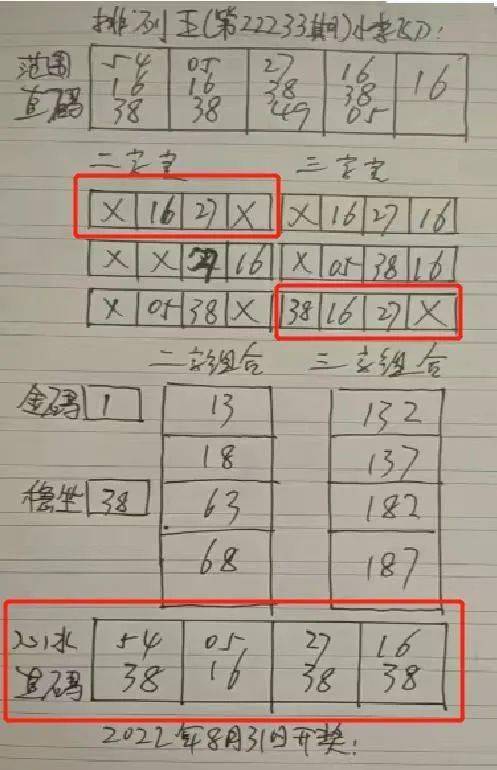 排列五(第22233期)小李飞刀:
范围 54 05 27 16 16
直码 16 16 38 38
38 38 49 05
二字定 三字定
X 16 27 X X 16 27 16
X X 27 16 X 05 38 16
X 05 38 X 38 16 27 X
二字组合 三字组合
金码 1 13 132
18 137
稳坐 38 63 182
68 187
心水 54 05 27 16
直码 38 16 38 38
2022年8月31日开奖: